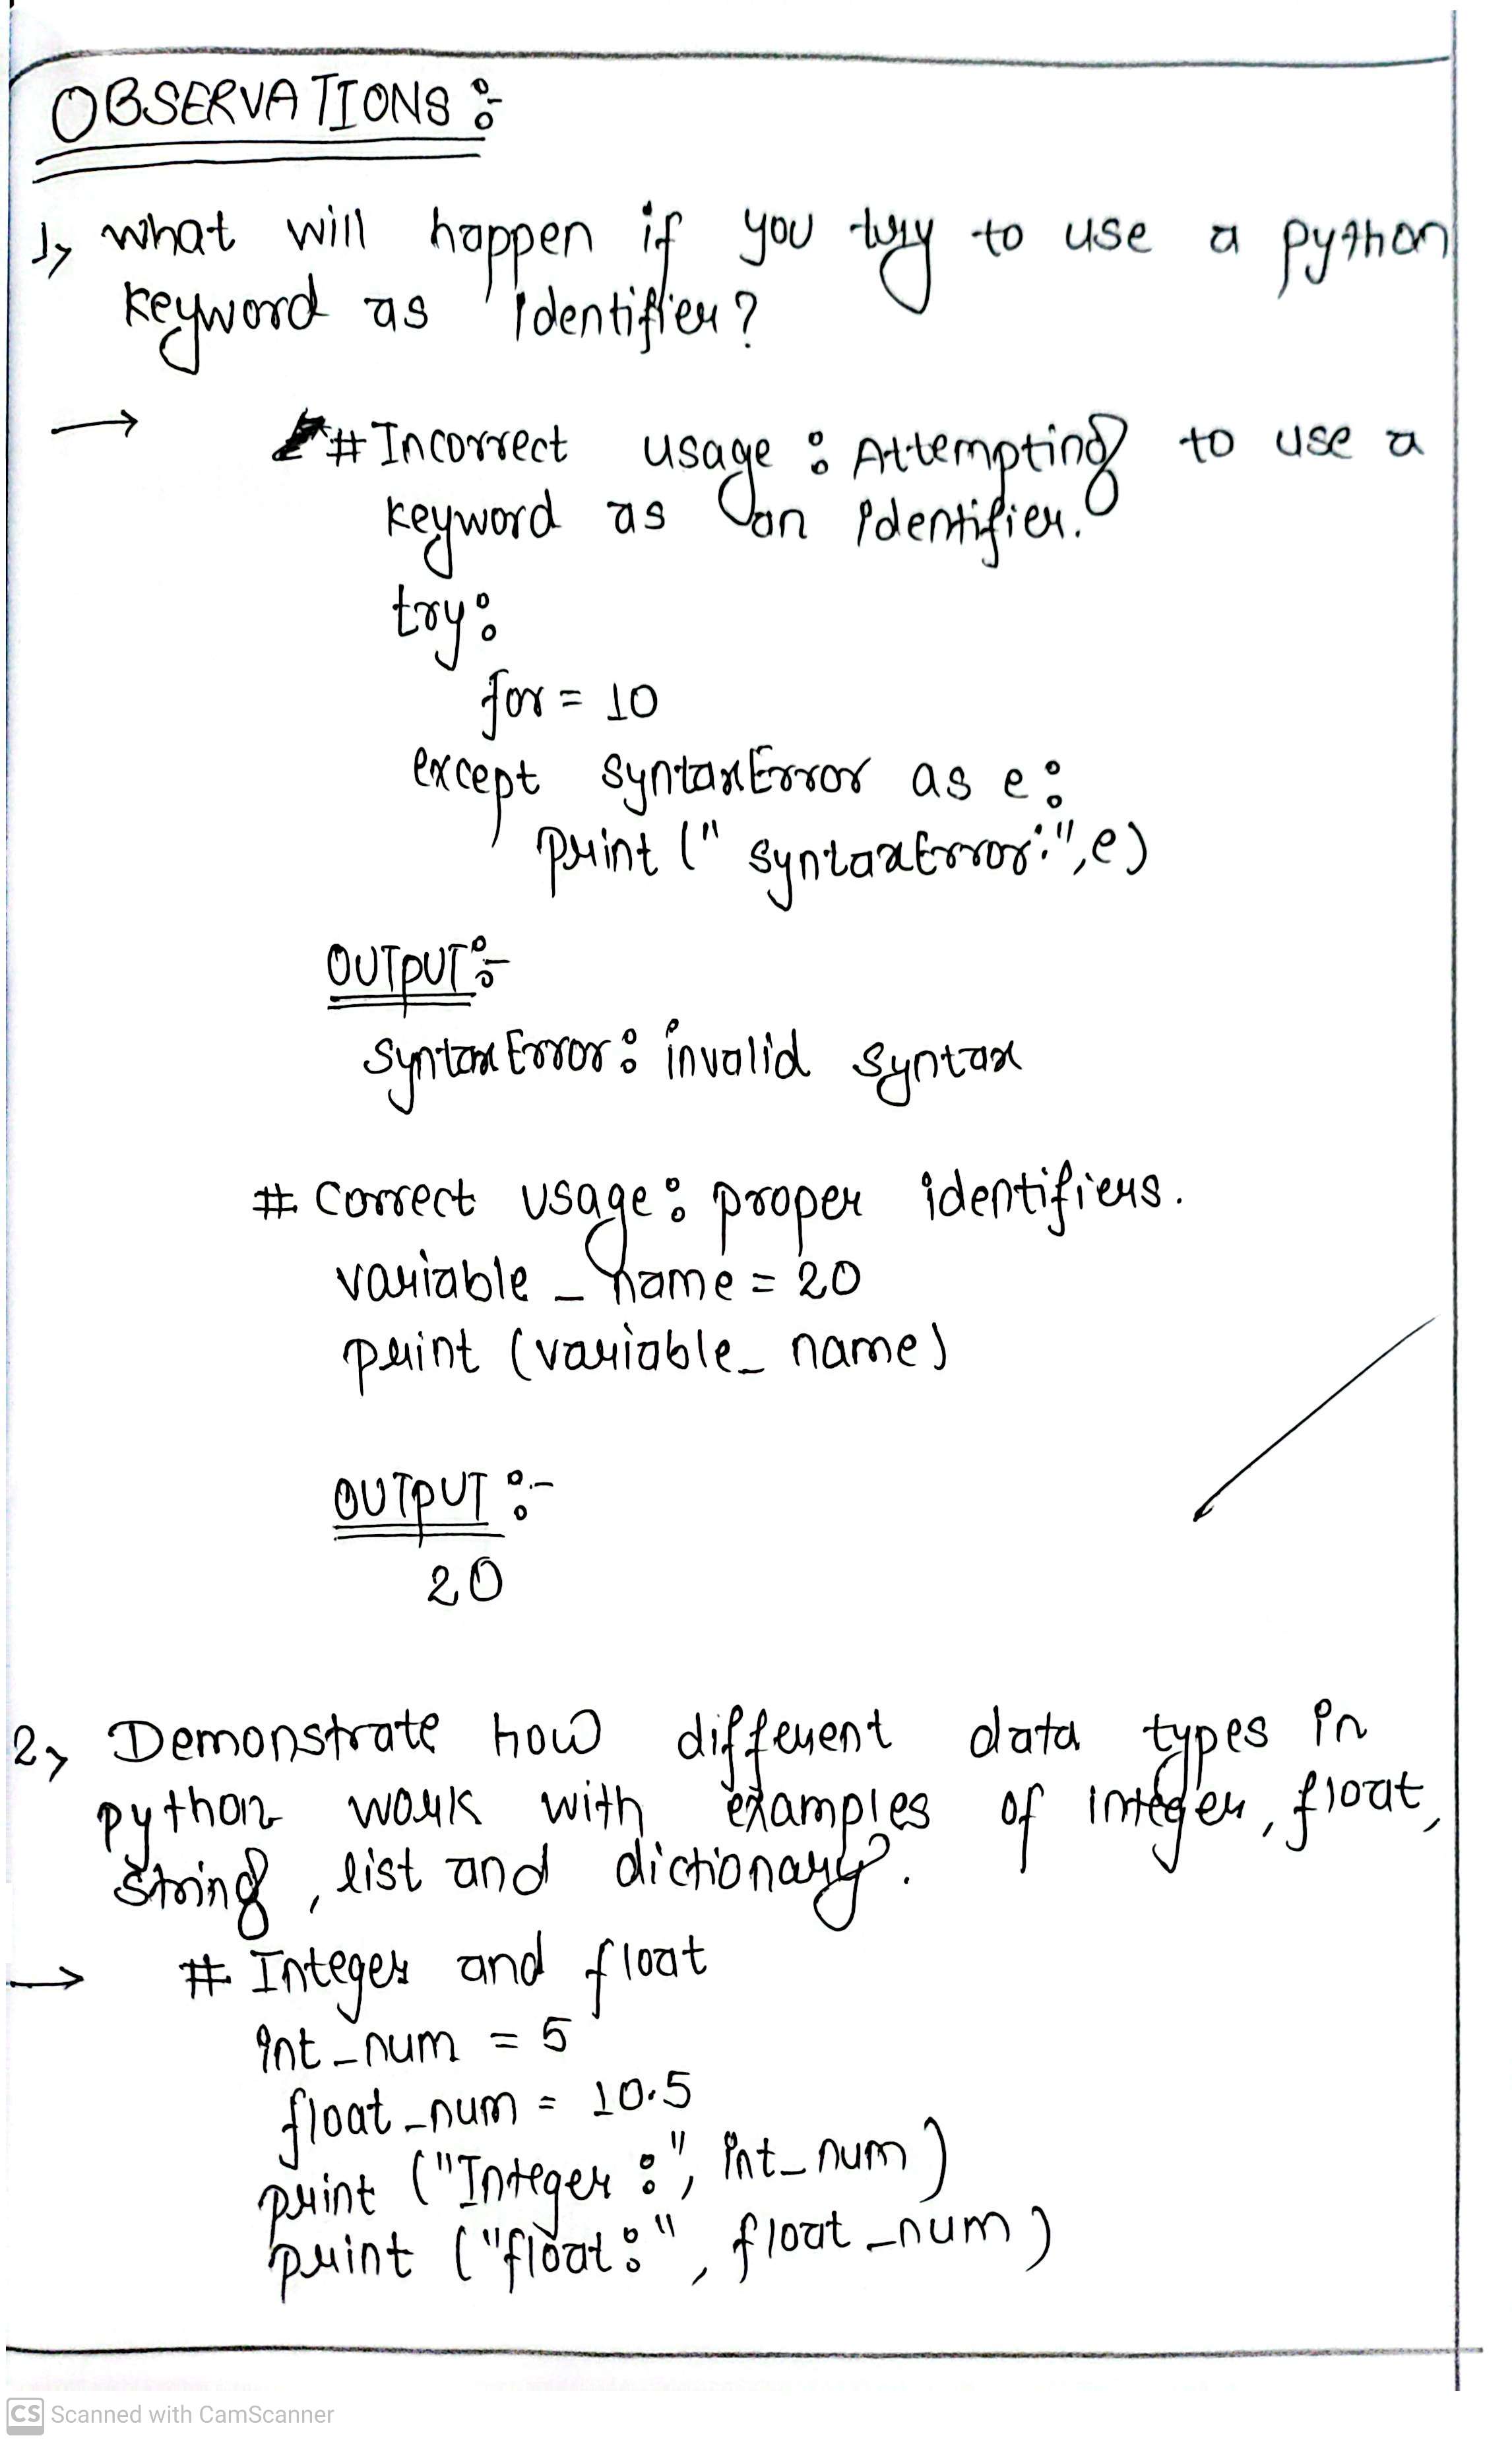 OBSERVATIONS :-
1, what will happen if you try to use a python
keyword as identifier?
→ # Incorrect usage : Attempting to use a
keyword as an identifier.
try:
for = 10
except syntaxError as e:
print (" syntaxError:", e)
OUTPUT :-
SyntaxError : invalid syntax
# Correct usage : proper identifiers.
variable _ name = 20
print (variable_ name)
OUTPUT :-
20
2, Demonstrate how different data types in
python work with examples of integer, float,
string, list and dictionary.
→ # Integer and float
int _ num = 5
float _ num = 10.5
print ("Integer :", int_ num )
print ("float :", float _num )
CS Scanned with CamScanner